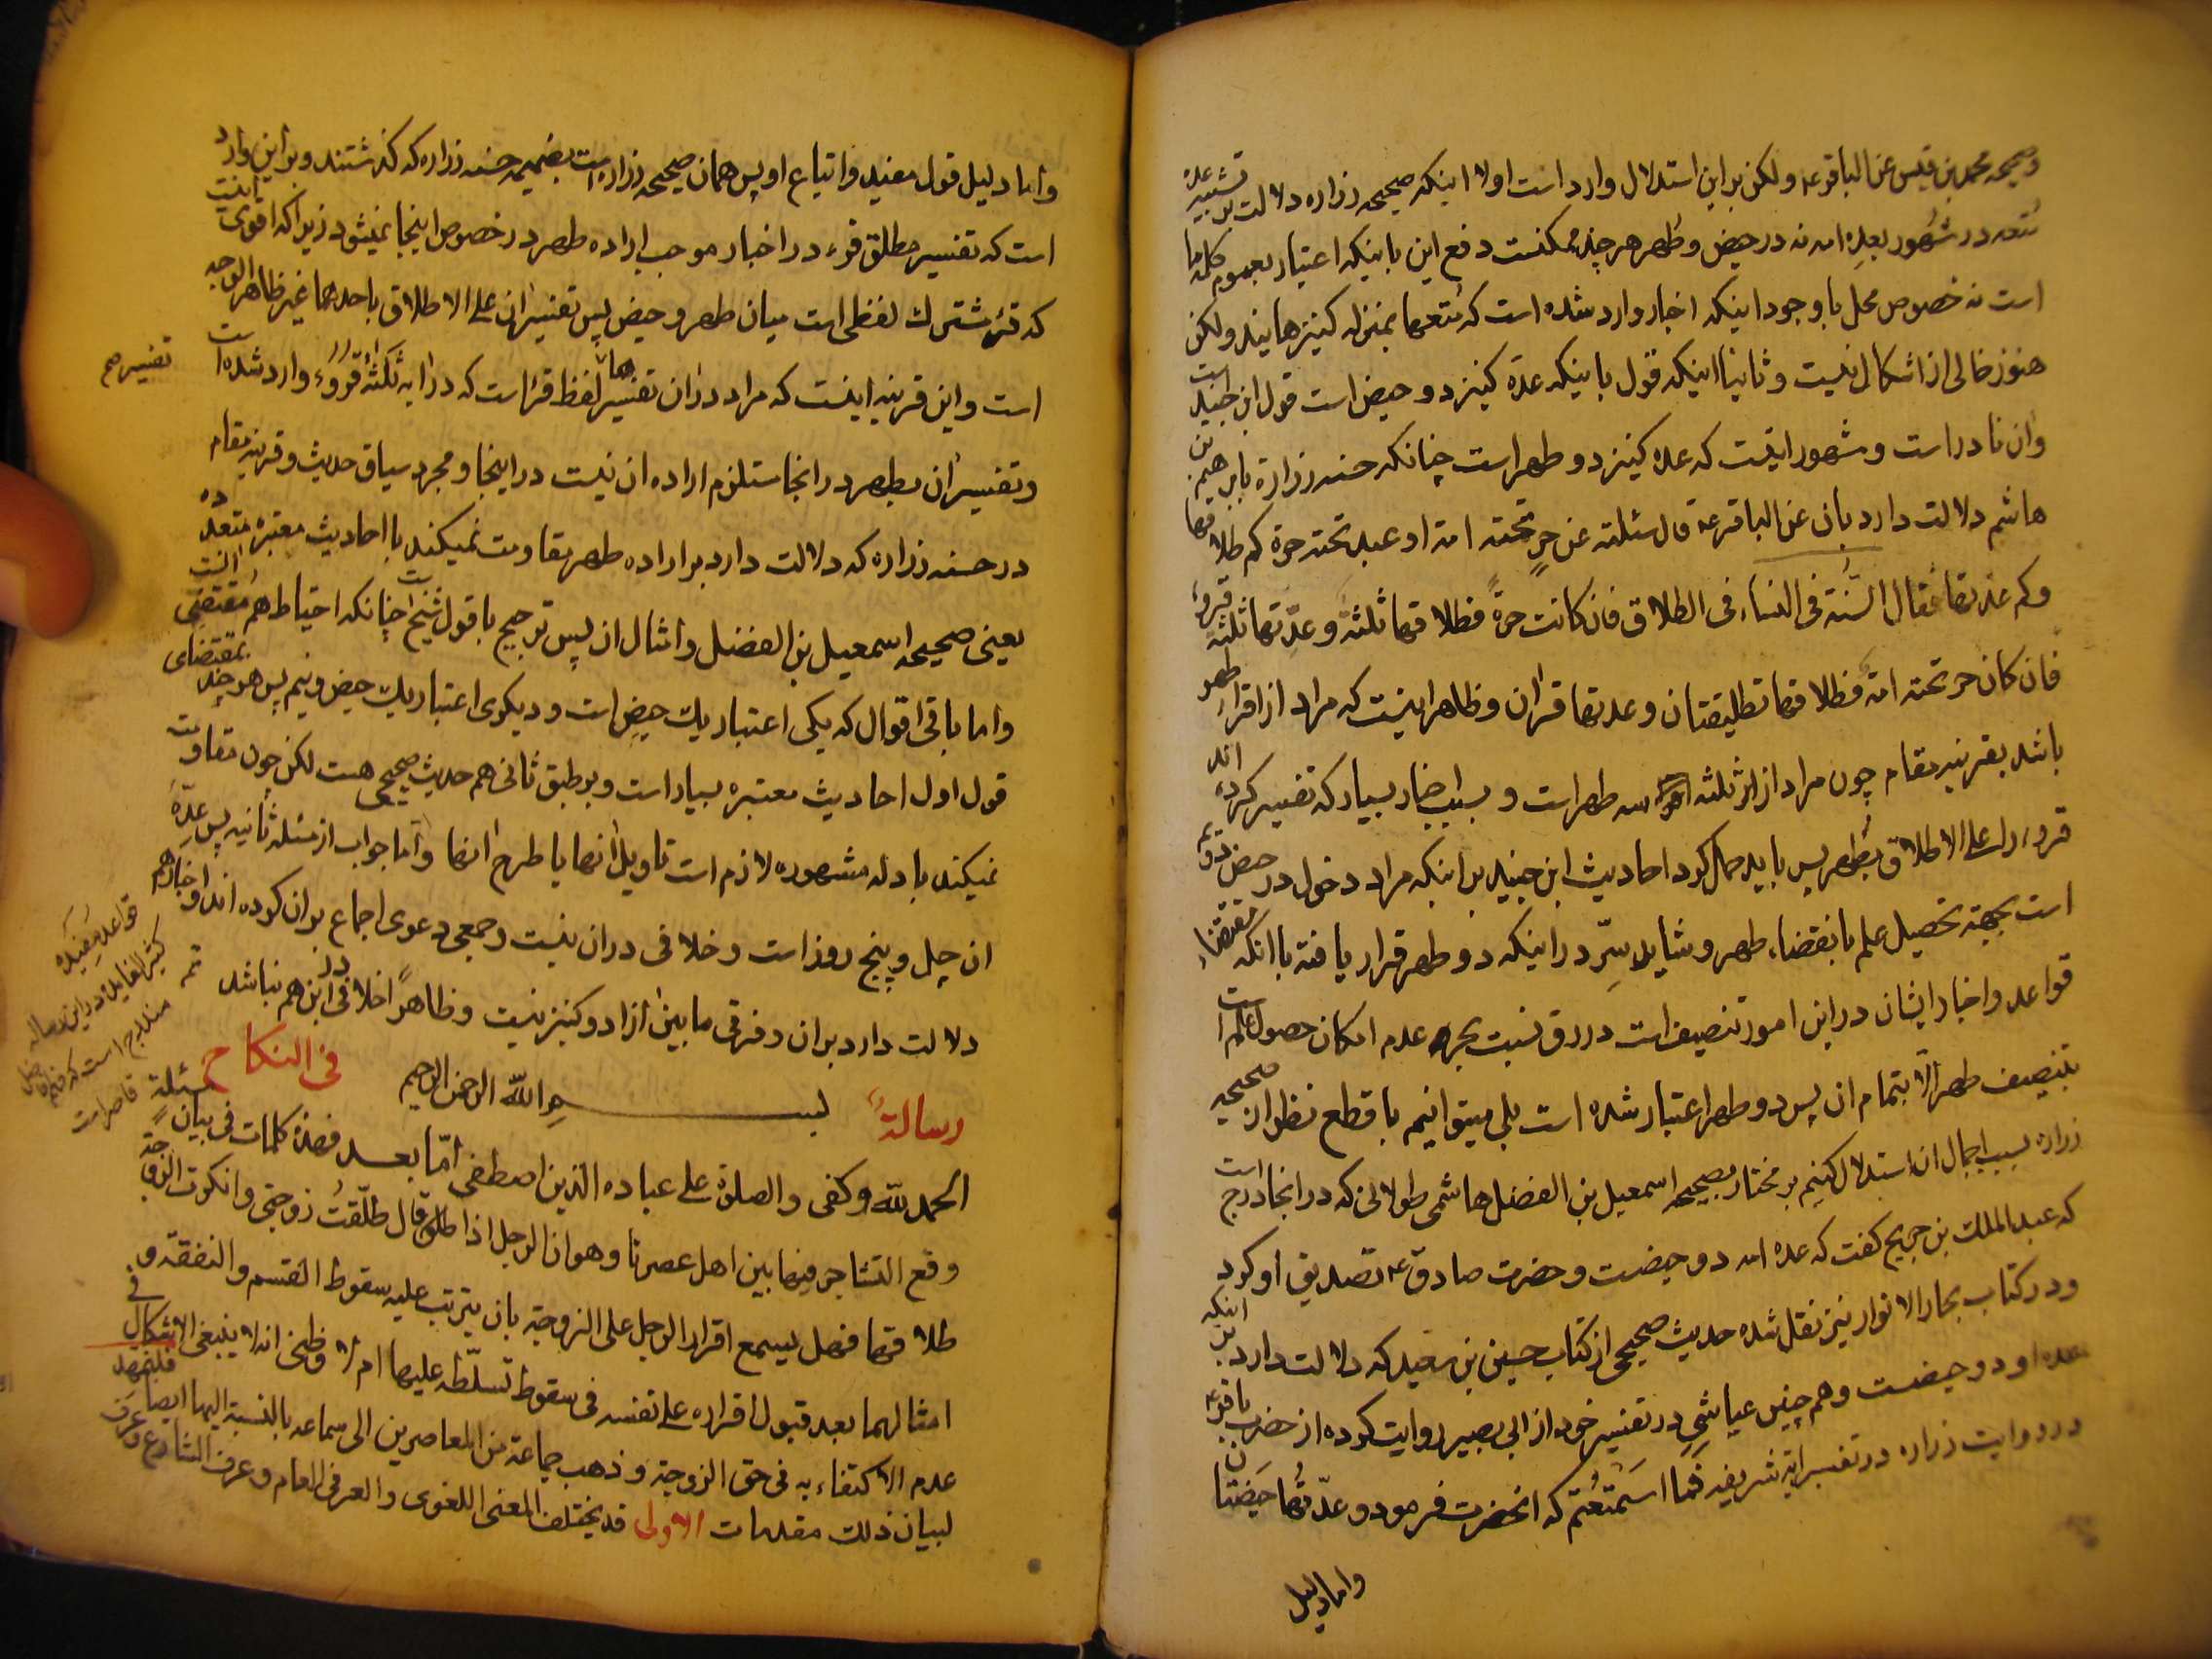 وصحیحه محمد بن قیس عن الباقر ع و لکن بر این استدلال وارد است اولا اینکه صحیحه زراره دلالت بر تشبیه عده
متعه در شهور بعده امه نه در حیض و طهر هر چند ممکنست دفع این باینکه اعتبار بعموم کلمه ما
است نه خصوص محل با وجود اینکه اخبار وارد شده است که متعها بمنزله کنیزهایند ولکن
هنوز خالی از اشکال نیست و ثانیا اینکه قول باینکه عدة کنیز دو حیض است قول ابن جنید است
وان نادر است و مشهور اینست که عده کنیز دو طهر است چنانکه حسنه زرارة بابرهیم بن
هاشم دلالت دارد بان عن الباقر ع قال سئلته عن حرٍ تحته امة او عبد تحته حرة کم طلاقها
وکم عدتها فقال السُنة فی النساء فی الطلاق فان کانت حرةً فطلاقها ثلثة وعدّتها ثلثة قروء
فان کان حر تحته امة فطلاقها تطلیقتان وعدتها قرآن وظاهر اینست که مراد از اقراء طهر
باشد بقرینه مقام چون مراد از ثلثه سه طهر است و بسبب اخبار بسیار که تفسیر کرده اند
قروء را علی الاطلاق بطهر پس باید حمل کرد احادیث ابن جنید بر اینکه مراد دخول در حیض دویم
است بجهة تحصیل علم بانقضاء طهر وشاید سِرّ در اینکه دو طهر قرار یافته با انکه مقتضاء
قواعد واخبار ایشان در این امور تنصیف است در رق نسبت بحر عدم امکان حصول علم است
بتنصیف طهر الا بتمام ان پس دو طهر اعتبار شده است بلی میتوانیم با قطع نظر از صحیحه
زراره بسبب اجمال ان استدلال کنیم بر مختار بصحیحه اسمعیل بن الفضل هاشمی طولانی که در انجا درج است
که عبد الملک بن جریح کفت که عده امه دو حیضست وحضرت صادق ع تصدیق او کرد
ودر کتاب بحار الانوار نیز نقل شده حدیث صحیحی از کتاب حسین بن سعید که دلالت دارد بر اینکه
عده او دو حیضست وهم چنین عیاشی در تفسیر خود از ابی بصیر روایت کرده از حضرت باقر ع
در روایت زراره در تفسیر ایه شریفه فَمَا اسْتَمْتَعْتُم که انحضرت فرمود و عدّتُها حَیْضَتان
واما دلیل
واما دلیل قول مفید واتباع او پس همان صحیحه زراره است بضمیمه حسنه زراره که کذشتند وبر این وارد
است که تفسیر مطلق قرء در اخبار موجب اراده طهر در خصوص اینجا نمیشود زیرا که اقوی اینست
که قرء مشترک لفظی است میان طهر وحیض پس تفسیر ان علی الاطلاق باحدهما غیر ظاهر الوجه
است واین قرینه اینست که مراد در ان تفسیرها لفظ قرا است که در ایه ثلثة قروء وارد شده است
تفسیر صح
وتفسیر ان بطهر در انجا مستلزم اراده ان نیست در اینجا ومجرد سیاق حدیث وقرینه مقام
در حسنه زراره که دلالت دارد بر اراده طهر مقاومت نمیکند با احادیث معتبره متعدده
یعنی صحیحه اسمعیل بن الفضل وامثال ان پس ترجیح با قول شیخ است چنانکه احتیاط هم مقتضی انست
واما باقی اقوال که یکی اعتبار یک حیض است ودیکری اعتبار یک حیض ونیم پس هر چند بمقتضای
قول اول احادیث معتبره بسیار است وبر طبق ثانی هم حدیث صحیحی هست لکن چون مقاومت
نمیکند با دله مشهوره لازم است تاویل انها یا طرح انها واما جواب از مسئله ثانیه پس عدّهٔ
ان چهل وپنج روز است وخلافی در ان نیست وجمعی دعوی اجماع بر ان کرده اند واخبار هم
دلالت دارد بر ان وفرقی ما بین ازاد وکنیز نیست وظاهرًا خلافی در این هم نباشد تمه
قواعد مفیده
کثیر الفایده در این رساله
مندرج است که فهم
قاصر است
فی النکاح
رسالةٌ بسم الله الرحمن الرحیم
الحمد لله وکفی والصلوة علی عباده الذین اصطفی امّا بعد فهذه کلمات فی بیان مسئلةٍ
وقع التشاجر فیها بین اهل عصرنا وهو ان الرجل اذا قال طلّقتُ زوجتی وانکرت الزوجة
طلاقها فهل یسمع اقرار الرجل علی الزوجة بان یترتب علیه سقوط القسم والنفقة و
امثالهما بعد قبول اقراره علی نفسه فی سقوط تسلّطه علیها ام لا وظنی انه لا ینبغی الاشکال فی
عدم الاکتفاء به فی حق الزوجة وذهب جماعة من المعاصرین الی سماعه بالنسبة الیها ایضا فلنمهد
لبیان ذلک مقدمات الاولی قد یختلف المعنی اللغوی والعرفی العام وعرف الشارع وعرف